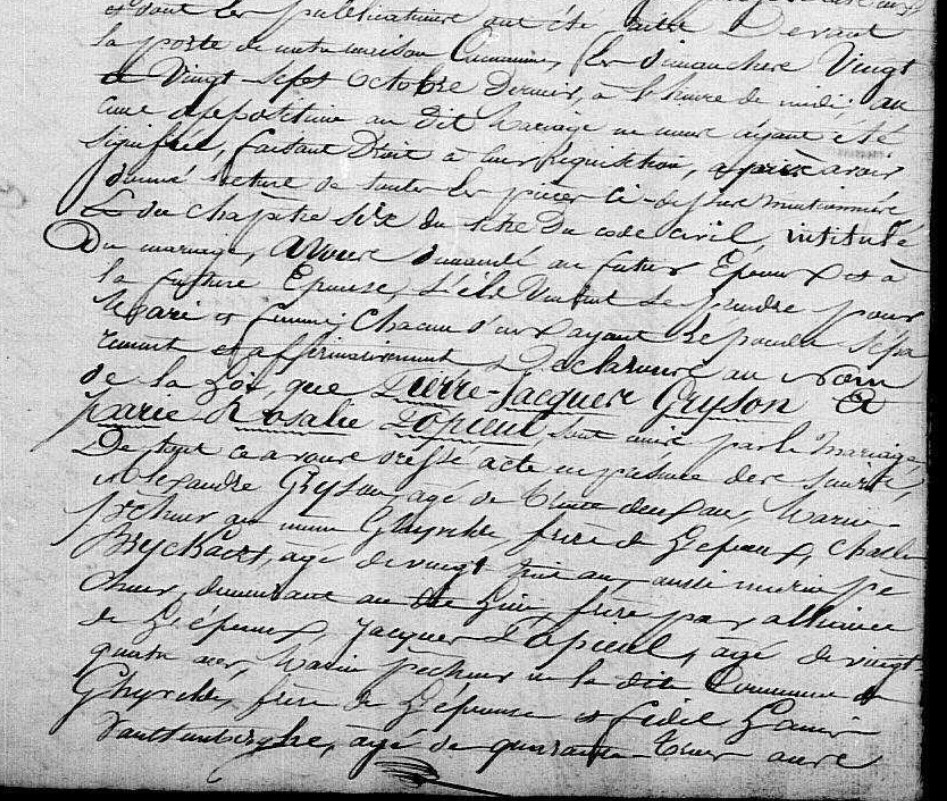 et dont les publications ont été faites Devant
la porte de notre maison Commune, les dimanches Vingt
et Vingt-sept Octobre Dernier, à l'heure de midi; au
cune opposition au dit Mariage ne nous ayant été
signifiée, faisant Droit à leur réquisition, après avoir
donné lecture de toutes les pièces ci-dessus mentionnées
& du chapitre six du titre Du code civil, intitulé
Du mariage, Avons demandé au futur Epoux et à
la future Epouse, s'ils veulent se prendre pour
Mari et femme; Chacun d'eux ayant Répondu sépa
rément et affirmativement, Déclarons au Nom
de la Loi, que Pierre-Jacques Gryson &
Marie Rosalie Popieul, sont unis par le Mariage,
De tout ce avons dressé acte en présence des sieurs,
Alexandre Gryson, agé de Trente deux ans, Marin-
pêcheur au même Ghyvelde, frère de L'Epoux, Charles
Ryckaert, agé de vingt huit ans, aussi marin pê
cheur, demeurant au dit Lieu, frère par alliance
de L'époux, Jacques Popieul, agé de vingt
quatre ans, Marin pêcheur en la dite Commune de
Ghyvelde, frère de L'épouse et Fidel Louis
Vauttenberghe, agé de quarante-trois ans